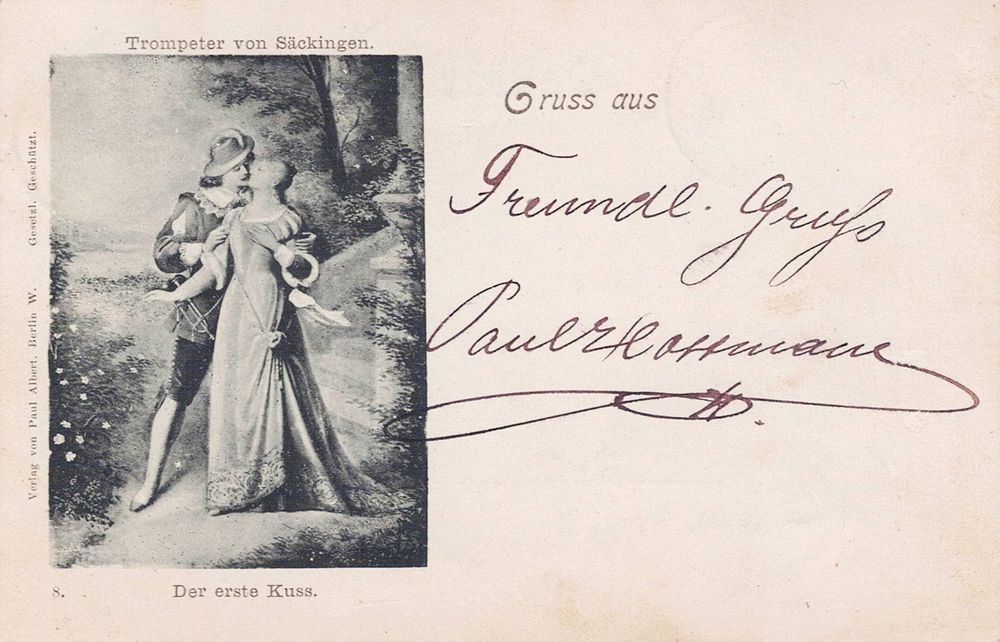 Trompeter von Säckingen.
Gruss aus
Freundl. Gruß
Paul Hoffmann
Verlag von Paul Albert. Berlin W. Gesetzl. Geschützt.
8. Der erste Kuss.